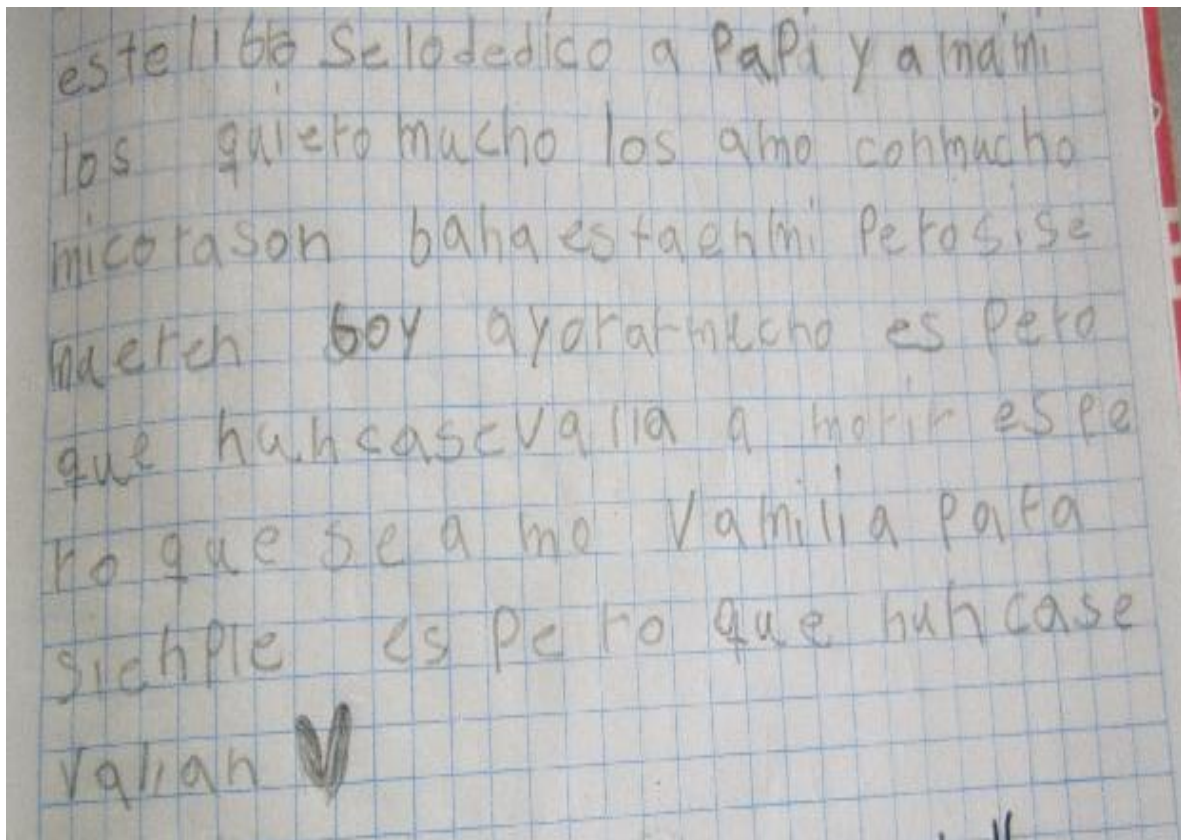 este libro se lo dedico a PaPi y a mami
los quiero mucho los amo conmucho
micorason bana estaenmi Perosi se
mueren boy ayorarmucho es Pero
que nuncasevalla a morir espe
ro que sea mo vamilia para
sienple es Pe ro que nuncase
valian